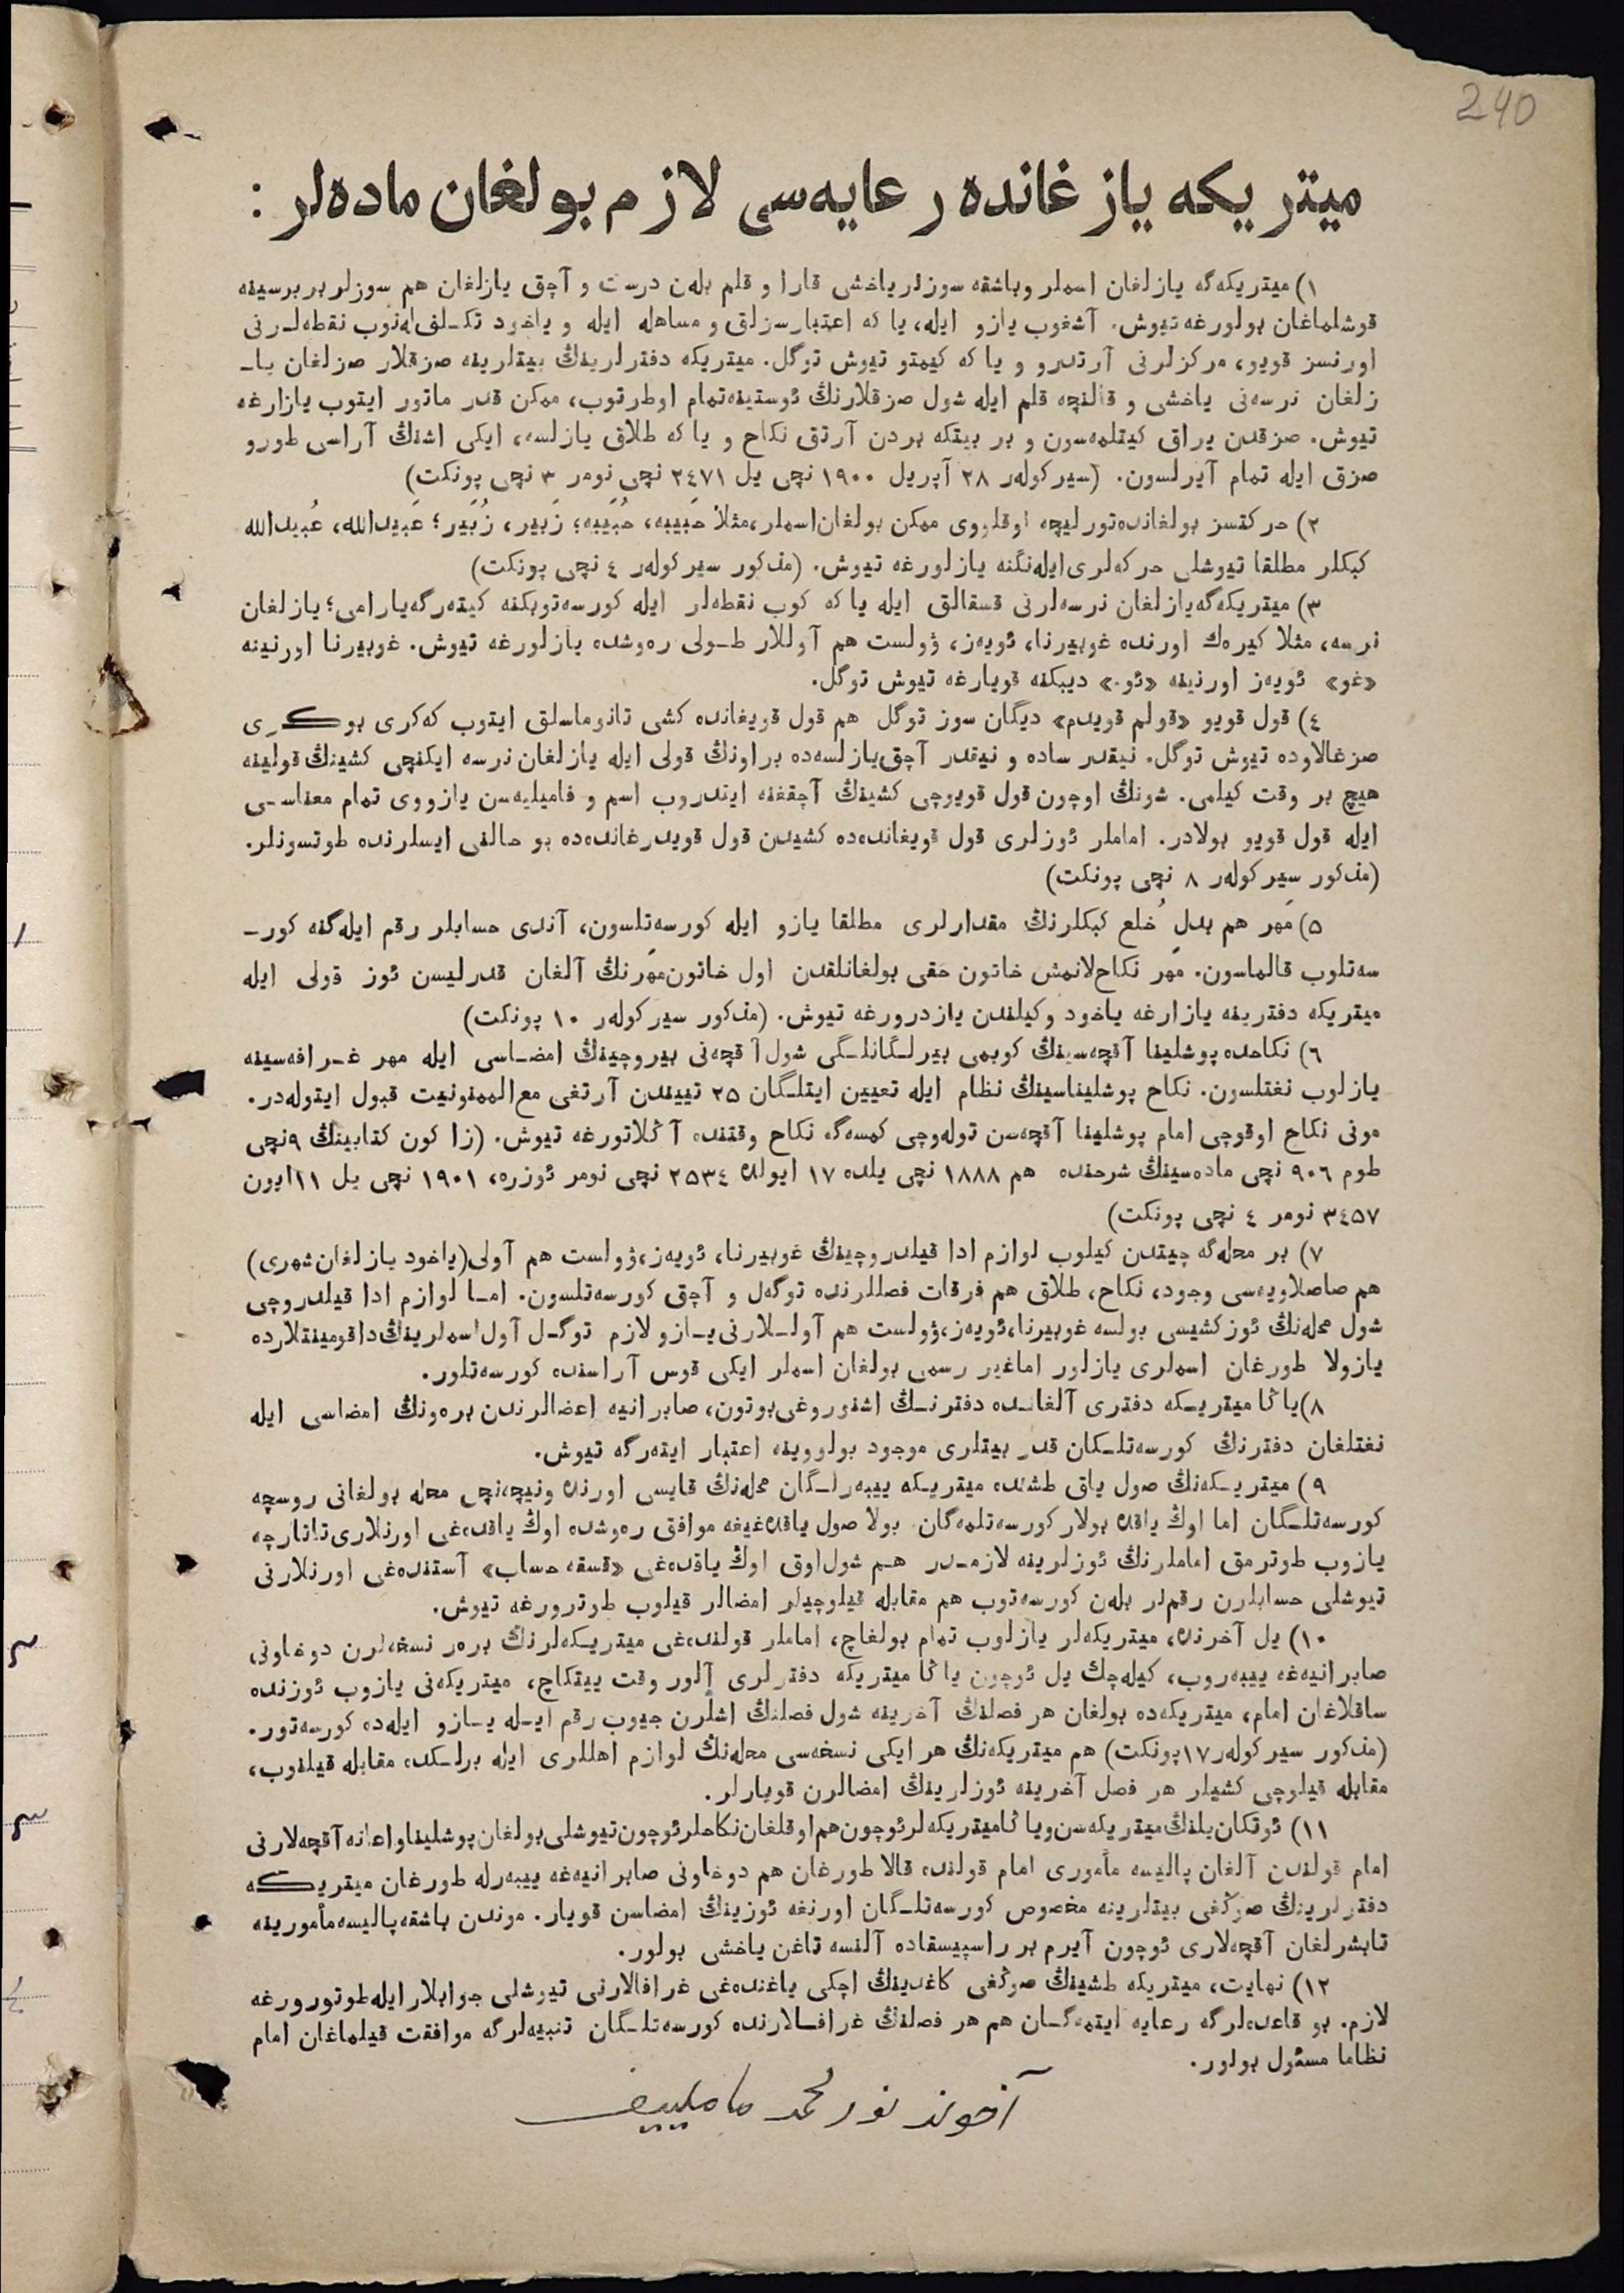 240
ميتريكه يازغانده رعايه‌سى لازم بولغان ماده‌لر :
١) ميتريكه‌گه يازلغان اسملر وباشقه سوزلر ياخشى قارا و قلم بله‌ن درست و آچق يازلغان هم سوزلر بربرسينه
قوشلماغان بولورغه تيوش. آشغوب يازو ايله، يا كه اعتبارسزلق و مساهله ايله و ياخود تكـلف‌له‌نوب نقطه‌لـرنى
اورنسز قويو، مركزلرنى آرتدرو و يا كه كيمتو تيوش توگل. ميتريكه دفترلرينڭ بيتلرينه صزقلار صزلغان يا-
زلغان نرسه‌نى ياخشى و قالنچه قلم ايله شول صزقلارنڭ ئوستينه‌تمام اوطرتوب، ممكن قدر ماتور ايتوب يازارغه
تيوش. صزقدن يراق كيتلمه‌سون و بر بيتكه بردن آرتق نكاح و يا كه طلاق يازلسه، ايكى اشنڭ آراسى طورو
صزق ايله تمام آيرلسون. (سيركوله‌ر ٢٨ آپريل ١٩٠٠ نچى يل ٢٤٧١ نچى نومر ٣ نچى پونكت)
٢) حركتسز بولغانده‌تورليچه اوقلووى ممكن بولغان‌اسملر،مثلا حَبيبه، حُبَيبه؛ زَبير، زُبَير؛ عَبيدالله، عُبيدالله
كبكلر مطلقا تيوشلى حركه‌لرى‌ايله‌نگنه يازلورغه تيوش. (مذكور سيركوله‌ر ٤ نچى پونكت)
٣) ميتريكه‌گه‌يازلغان نرسه‌لرنى قسقالق ايله يا كه كوب نقطه‌لر ايله كورسه‌توبكنه كيته‌رگه‌يارامى؛ يازلغان
نرسه، مثلا كيره‌ك اورنده غوبيرنا، ئويه‌ز، ۋولست هم آوللار طـولى ره‌وشده يازلورغه تيوش. غوبيرنا اورنينه
«غو» ئويه‌ز اورنينه «ئو.» ديبكنه قويارغه تيوش توگل.
٤) قول قويو «قولم قويدم» ديگان سوز توگل هم قول قويغانده كشى تانوماسلق ايتوب كه‌كرى بوكـرى
صزغالاوده تيوش توگل. نيقدر ساده و نيقدر آچق‌يازلسه‌ده براونڭ قولى ايله يازلغان نرسه ايكنچى كشينڭ قولينه
هيچ بر وقت كيلمى. شونڭ اوچون قول قويوچى كشينڭ آچقغنه ايتدروب اسم و فاميليه‌سن يازووى تمام معناسـى
ايله قول قويو بولادر. اماملر ئوزلرى قول قويغانده‌ده كشيدن قول قويدرغانده‌ده بو حالنى ايسلرنده طوتسونلر.
(مذكور سيركوله‌ر ٨ نچى پونكت)
٥) مَهر هم بدلِ خُلع كبكلرنڭ مقدارلرى مطلقا يازو ايله كورسه‌تلسون، آندى حسابلر رقم ايله‌گنه كور-
سه‌تلوب قالماسون. مَهر نكاح‌لانمش خاتون حقى بولغانلقدن اول خاتون‌مَهرنڭ آلغان قدرليسن ئوز قولى ايله
ميتريكه دفترينه يازارغه ياخود وكيلندن يازدرورغه تيوش. (مذكور سيركوله‌ر ١٠ پونكت)
٦) نكاحده پوشلينا آقچه‌سينڭ كوبمى بيرلـگانلـگى شول آقچه‌نى بيروچينڭ امضـاسى ايله مهر غـرافه‌سينه
يازلوب نغتلسون. نكاح پوشليناسينڭ نظام ايله تعيين ايتلـگان ٢٥ تييندن آرتغى مع‌الممنونيت قبول ايتوله‌در.
مونى نكاح اوقوچى امام پوشلينا آقچه‌سن توله‌وچى كمسه‌گه نكاح وقتنده آڭلاتورغه تيوش. (زا كون كتابينڭ ٩نچى
طوم ٩٠٦ نچى ماده‌سينڭ شرحنده هم ١٨٨٨ نچى يلده ١٧ ايولده ٢٥٣٤ نچى نومر ئوزره، ١٩٠١ نچى يل ١١ايون
٣٤٥٧ نومر ٤ نچى پونكت)
٧) بر محله‌گه چيتدن كيلوب لوازم ادا قيلدروچينڭ غوبيرنا، ئويه‌ز،ۋولست هم آولى(ياخود يازلغان‌شهرى)
هم صاصلاويه‌سى وجود، نكاح، طلاق هم فرقات فصللرنده توگه‌ل و آچق كورسه‌تلسون. امـا لوازم ادا قيلدروچى
شول محله‌نڭ ئوزكشيسى بولسه غوبيرنا،ئويه‌ز،ۋولست هم آولـلارنى‌يـازو لازم توگـل آول‌اسملرينڭ‌داقومينتلارده
يازولا طورغان اسملرى يازلور اماغير رسمى بولغان اسملر ايكى قوس آراسنده كورسه‌تلور.
٨)ياڭا ميتريـكه دفترى آلغانـده دفترنـڭ اشنوروغى‌بوتون، صابرانيه اعضالرندن بره‌ونڭ امضاسى ايله
نغتلغان دفترنڭ كورسه‌تلـكان قدر بيتلرى موجود بولووينه اعتبار ايته‌رگه تيوش.
٩) ميتريـكه‌نڭ صول ياق طشنده ميتريـكه ييبه‌رلـگان محله‌نڭ قايسى اورنده ونيچه‌نچى محله بولغانى روسچه
كورسه‌تلـگان اما اوڭ ياقده بولار كورسه‌تلمه‌گان. بولا صول ياقده‌غيغه موافق ره‌وشده اوڭ ياقده‌غى اورنلارى‌تاتارچه
يازوب طوترمق اماملرنڭ ئوزلرينه لازمـدر هـم شول‌اوق اوڭ ياقده‌غى «قسقه حساب» آستنده‌غى اورنلارنى
تيوشلى حسابلرن رقم‌لر بله‌ن كورسه‌توب هم مقابله قيلوچيلر امضالر قيلوب طوترورغه تيوش.
١٠) يل آخرنده، ميتريكه‌لر يازلوب تمام بولغاچ، اماملر قولنده‌غى ميتريـكه‌لرنڭ بره‌ر نسخه‌لرن دوخاونى
صابرانيه‌غه ييبه‌روب، كيله‌چك يل ئوچون ياڭا ميتريكه دفترلرى آلور وقت ييتكاچ، ميتريكه‌نى يازوب ئوزنده
ساقلاغان امام، ميتريكه‌ده بولغان هر فصلنڭ آخرينه شول فصلنڭ اشلرن جيوب رقم ايـله يـازو ايله‌ده كورسه‌تور.
(مذكور سيركوله‌ر١٧پونكت) هم ميتريكه‌نڭ هر ايكى نسخه‌سى محله‌نڭ لوازم اهللرى ايله برلـكده مقابله قيلنوب،
مقابله قيلوچى كشيلر هر فصل آخرينه ئوزلرينڭ امضالرن قويارلر.
١١) ئوتكان‌يلنڭ‌ميتريكه‌سن‌وياڭاميتريكه‌لرئوچون‌هم‌اوقلغان‌نكاحلرئوچون‌تيوشلى‌بولغان‌پوشليناواعانه‌آقچه‌لارنى
امام قولندن آلغان پاليسه مأمورى امام قولنده قالا طورغان هم دوخاونى صابرانيه‌غه ييبه‌رله طورغان ميتريـكه
دفترلرينڭ صوڭغى بيتلرينه مخصوص كورسه‌تلـگان اورنغه ئوزينڭ امضاسن قويار. موندن باشقه‌پاليسه‌مأمورينه
تابشرلغان آقچه‌لارى ئوچون آيرم بر راسپيسقاده آلنسه تاغن ياخشى بولور.
١٢) نهايت، ميتريكه طشينڭ صوڭغى كاغدينڭ اچكى ياغنده‌غى غرافالارنى تيوشلى جوابلار ايله‌طوتورورغه
لازم. بو قاعده‌لرگه رعايه ايتمه‌گـان هم هر فصلنڭ غرافـالارنده كورسه‌تلـگان تنبيه‌لرگه موافقت قيلماغان امام
نظاما مسئول بولور.
آخوند نورمحمد ماملييف